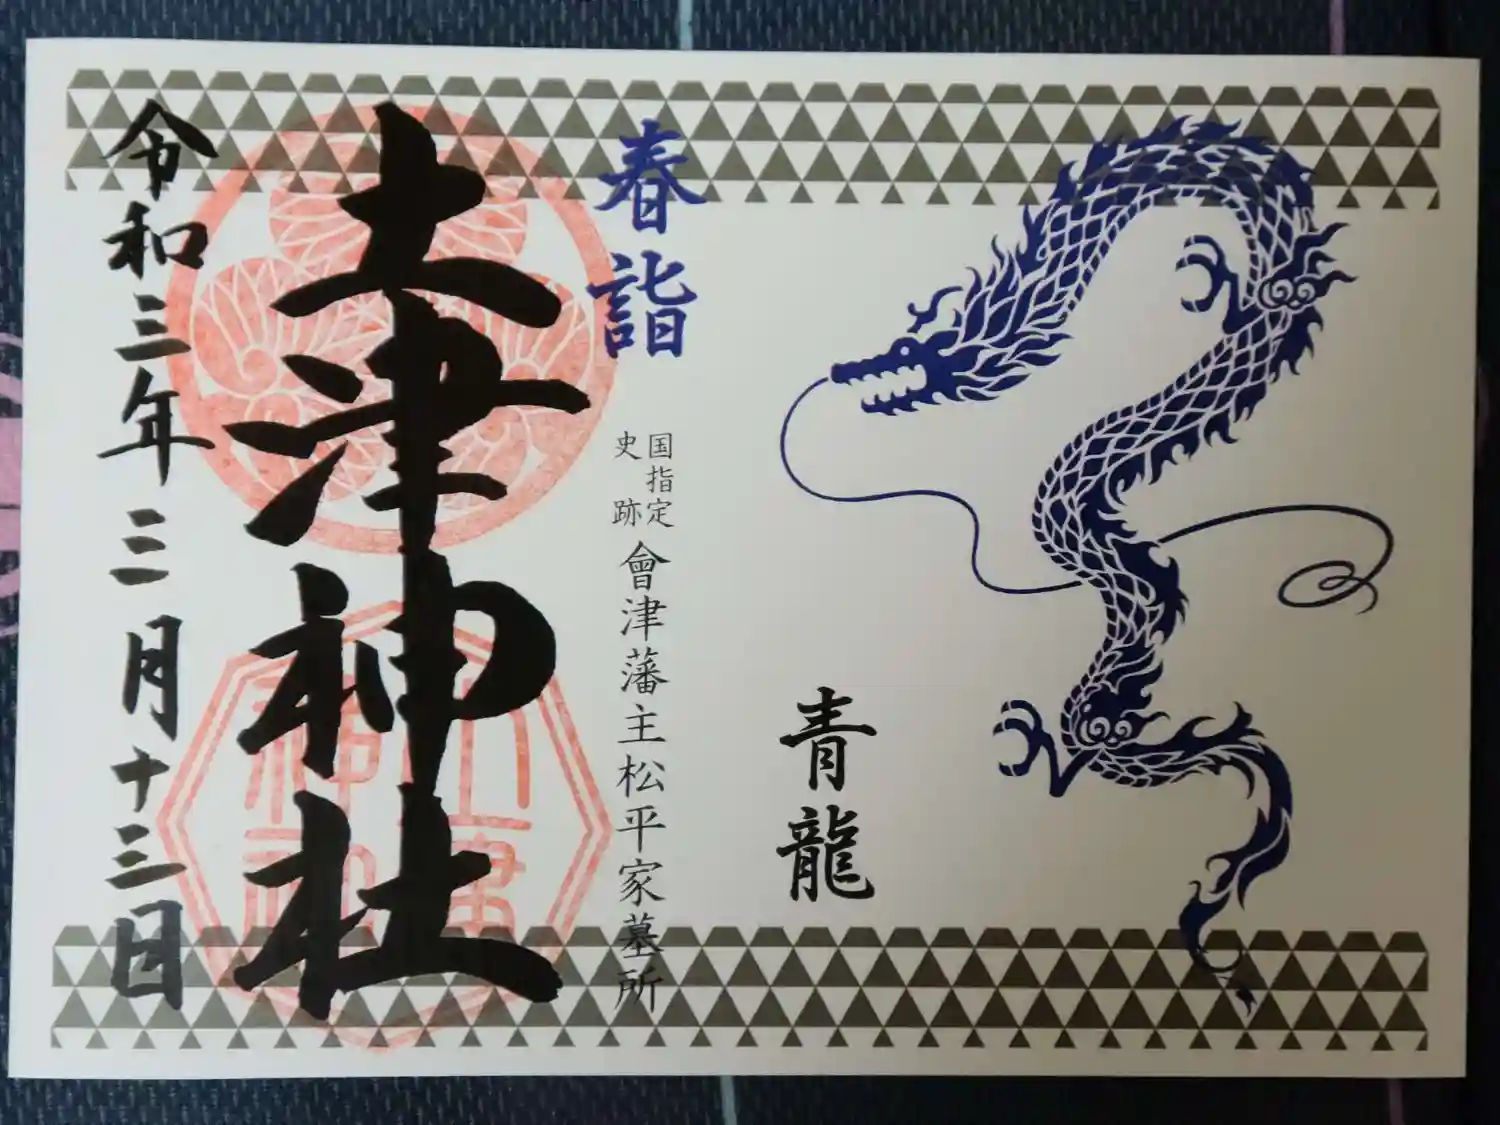 青龍
春詣
国指定
史跡
會津藩主松平家墓所
土津神社
令和三年三月十三日